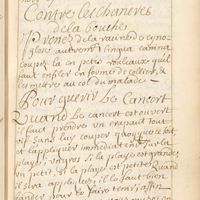 Contre les chancres
de la bouche
Prenez de la racine de cyno-
glose autrement lingua canina
coupez la en petits rouleaux quil
faut enfiler en forme de collier, &
les mettre au col du malade
Pour guerir Le Cancer
Quand Le cancer est ouvert
il faut prendre un crapaut tout
vif sans luy couper quoyque ce soit
et l'appliquer immediatement sur la
playe, vingt si la playe est grande,
un petit, si la playe est petite, Quand
il sera appliqué, il le faut bien
bander pour le faire tenir, affin